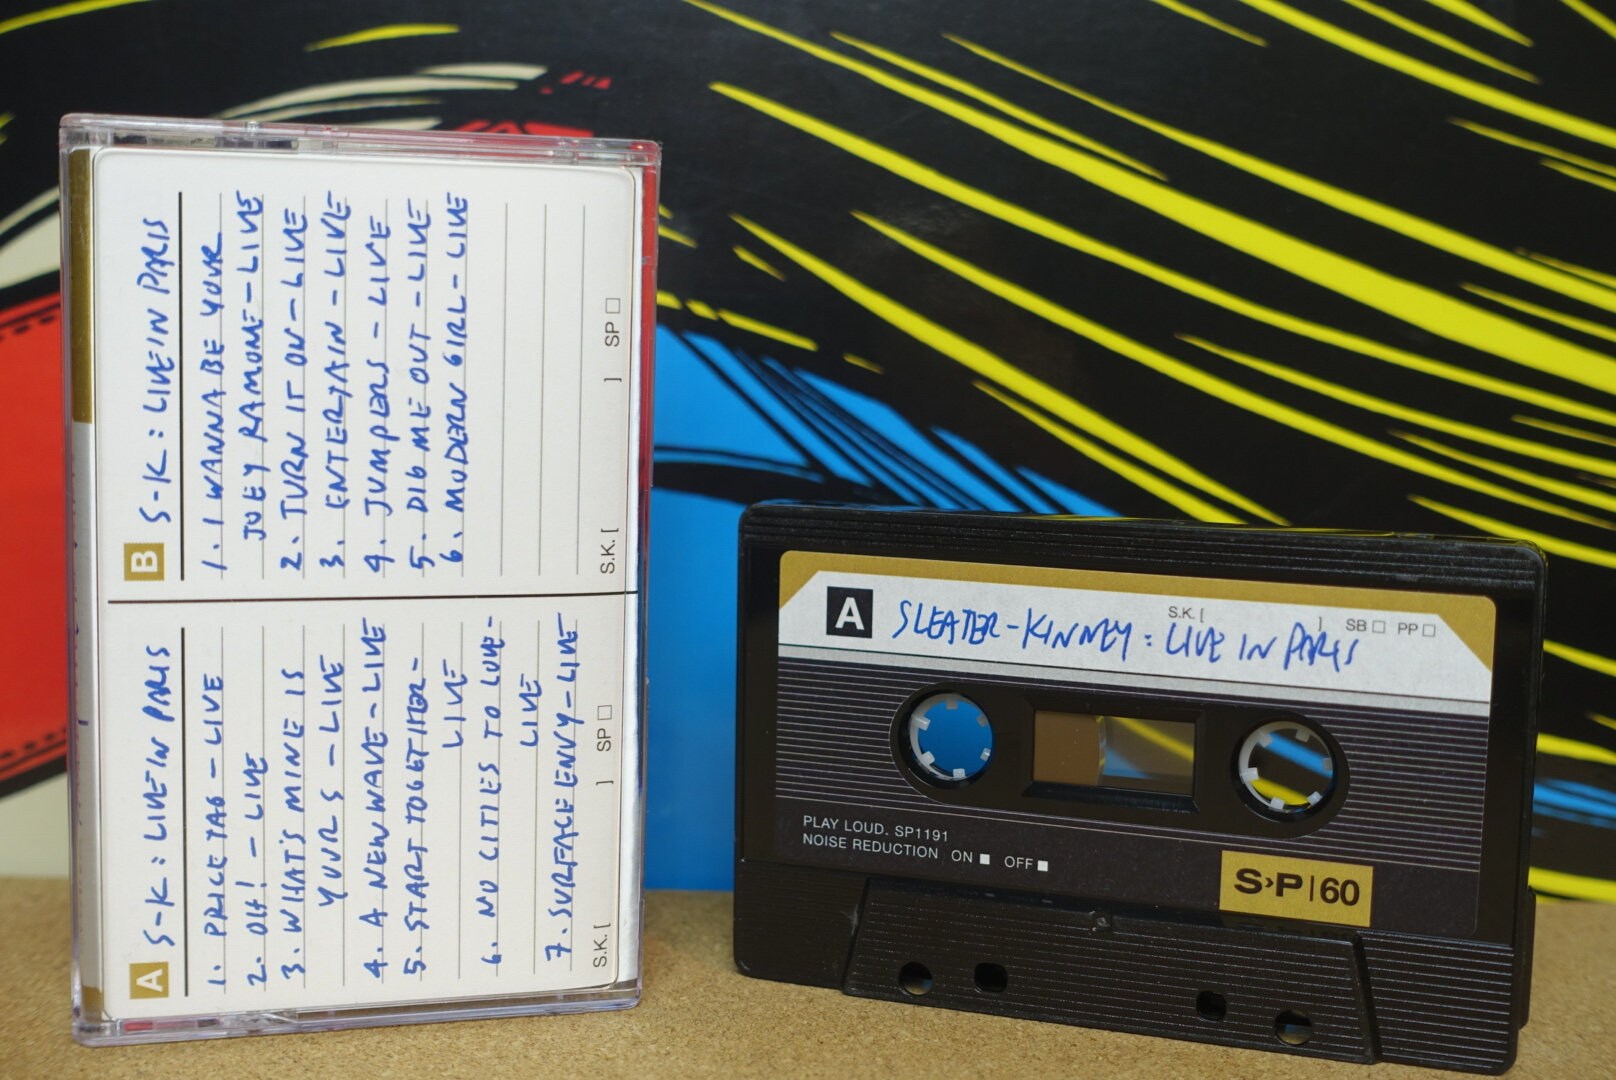 B S-K: LIVE IN PARIS
1. I WANNA BE YOUR
JOEY RAMONE - LIVE
2. TURN IT ON - LIVE
3. ENTERTAIN - LIVE
4. JUMPERS - LIVE
5. DIG ME OUT - LIVE
6. MODERN GIRL - LIVE
S.K. [ ] SP □
A S-K: LIVE IN PARIS
1. PRICE TAG - LIVE
2. OH! - LIVE
3. WHAT'S MINE IS
YOURS - LIVE
4. A NEW WAVE - LIVE
5. START TOGETHER -
LIVE
6. NO CITIES TO LOVE -
LIVE
7. SURFACE ENVY - LIVE
S.K. [ ] SP □
A SLEATER-KINNEY: LIVE IN PARIS
S.K. [ ] SB □ PP □
PLAY LOUD. SP1191
NOISE REDUCTION ON ■ OFF ■
S>P|60